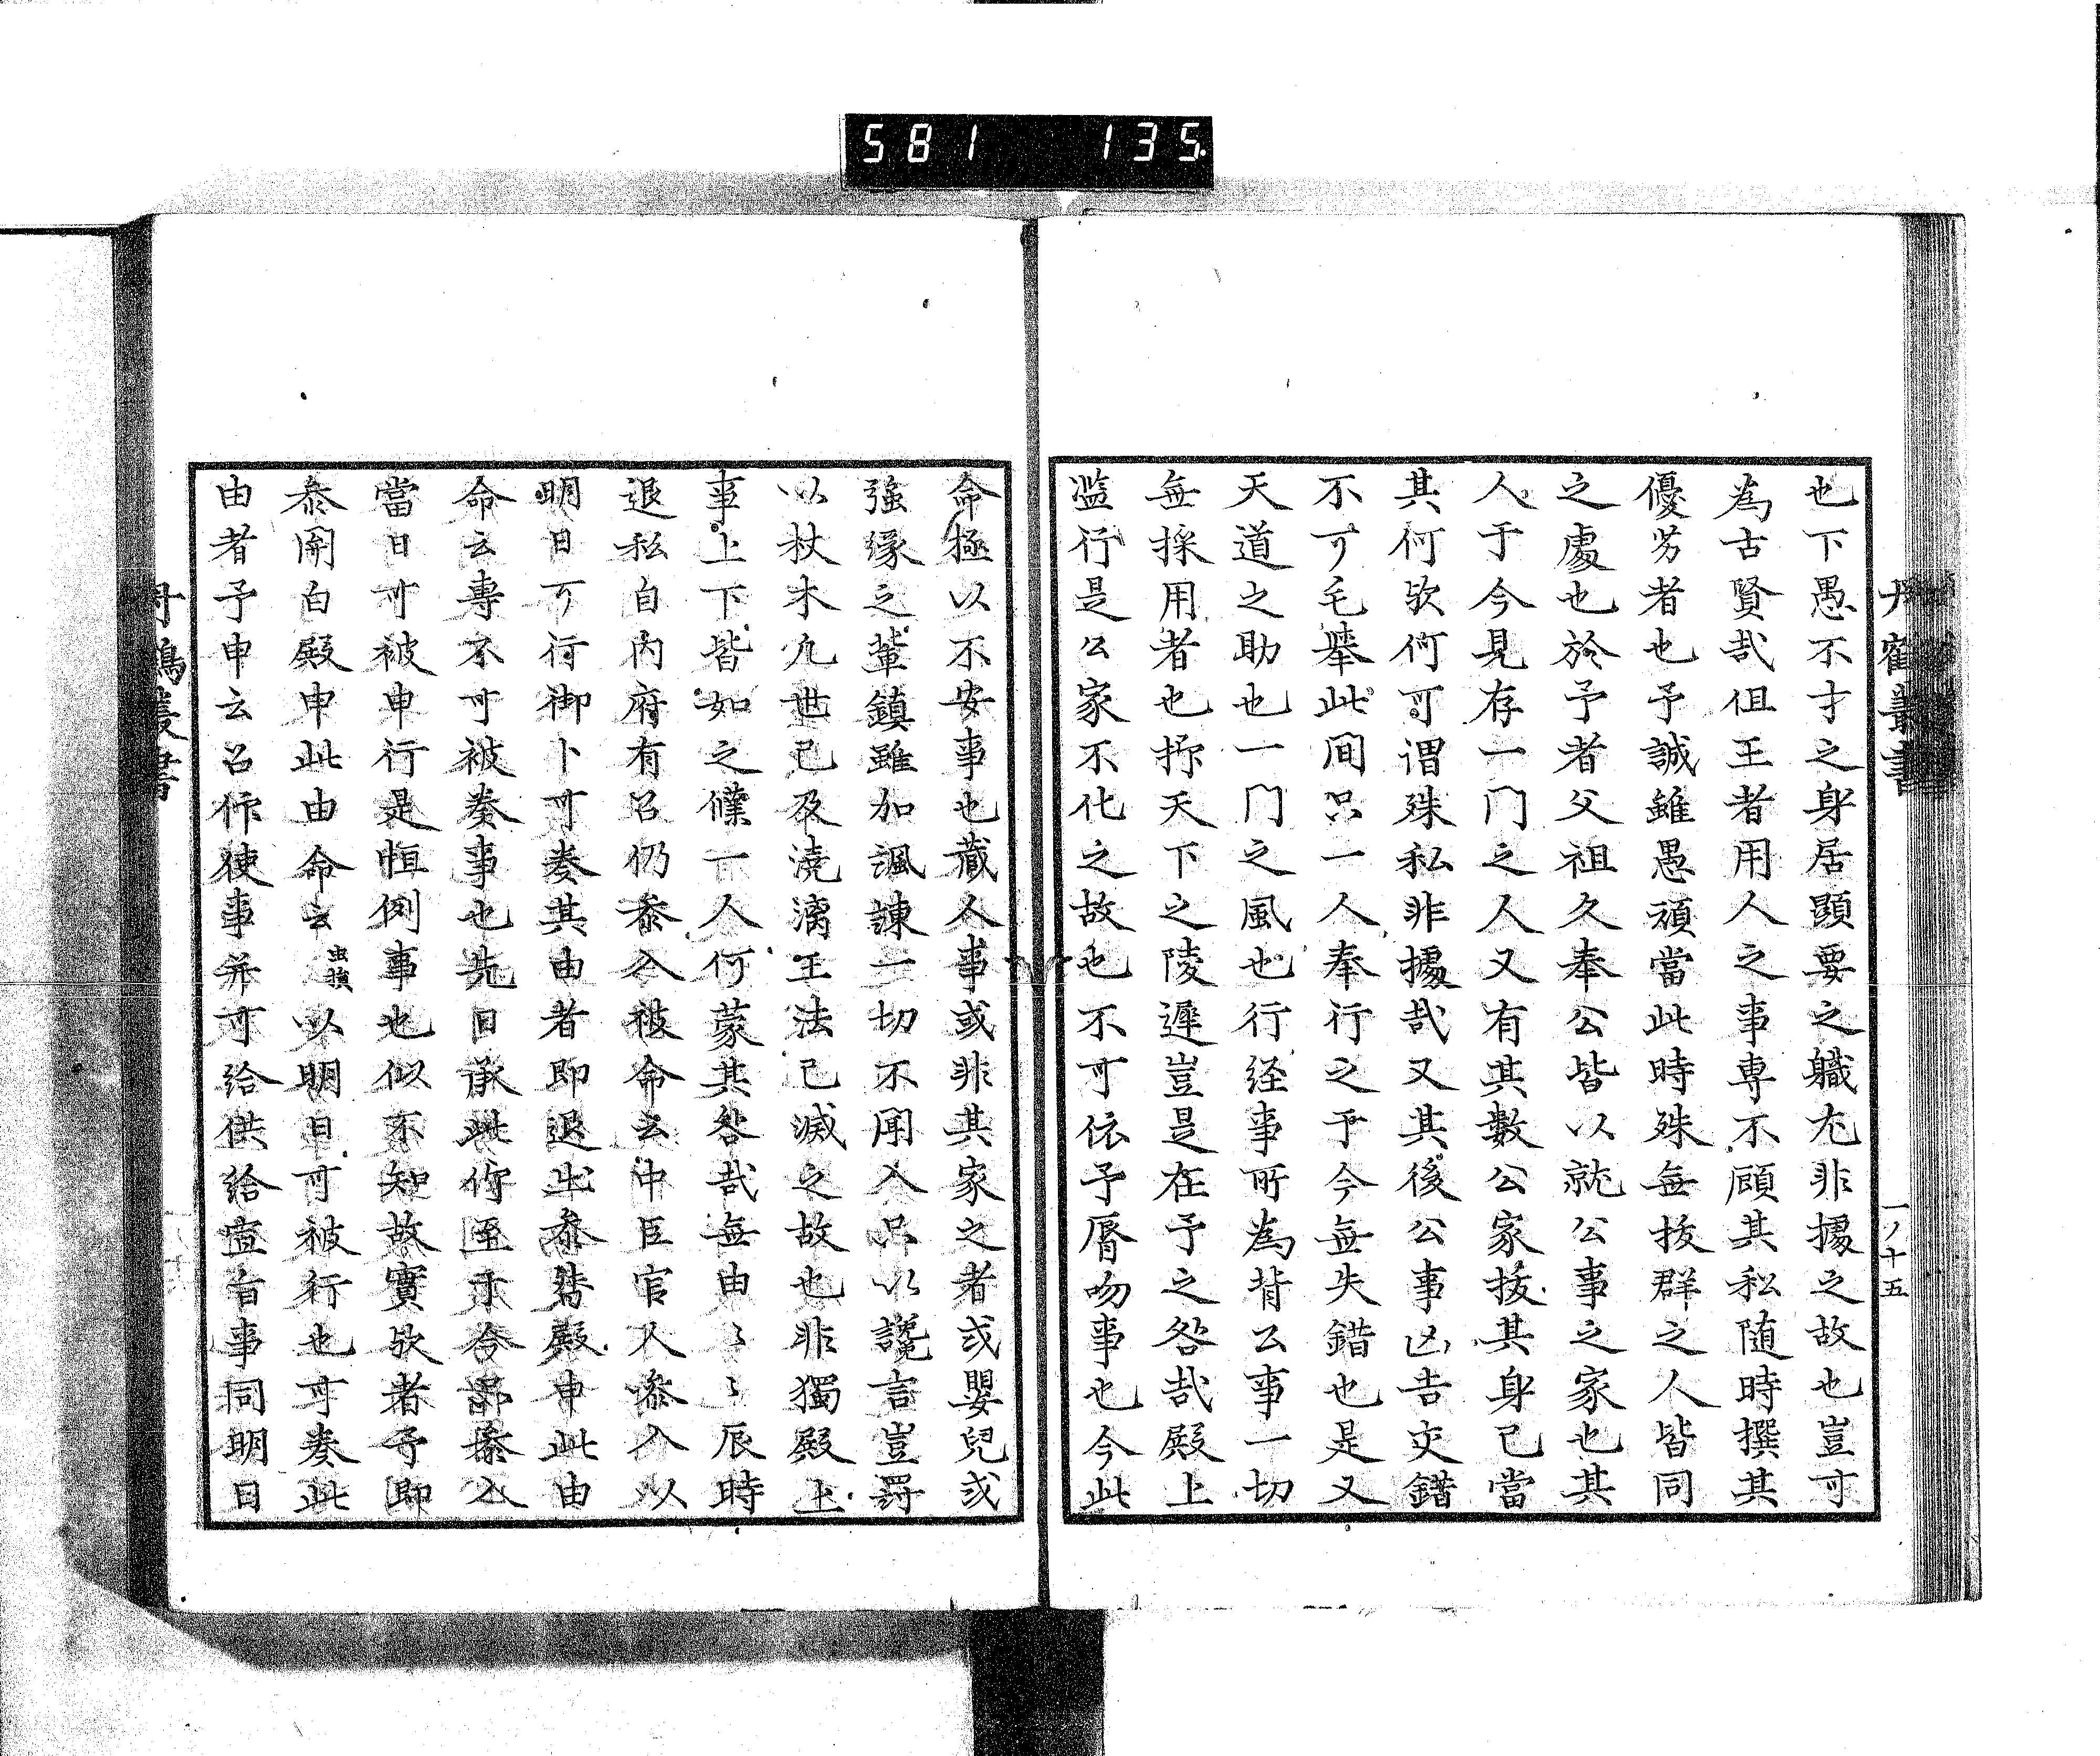 581 135
丹鶴叢書
一ノ十五
也下愚不才之身居顕要之職尤非據之故也豈可
為古賢哉但王者用人之事専不顧其私随時撰其
優劣者也予誠雖愚頑當此時殊無抜群之人皆同
之處也於予者父祖久奉公皆以就公事之家也其
人于今見存一门之人又有其數公家抜其身已當
其何欤何可谓殊私非據哉又其後公事凶吉交錯
不可毛舉此间只一人奉行之于今無失錯也是又
天道之助也一门之風也行経事所為背公事一切
無採用者也抑天下之陵遲豈是在予之咎哉殿上
濫行是公家不化之故也不可依予脣吻事也今此
命極以不安事也蔵人事或非其家之者或嬰兒或
強縁之輩鎮雖加諷諌一切不聞入只以讒言豈罸
以杖木九世已及澆漓王法已滅之故也非獨殿上
事上下皆如之僕一人何蒙其咎哉無由〻〻辰時
退私自内府有召仍参入被命云中臣官人参入以
明日可行御卜可奏其由者即退出参殿申此由
命云專不可被奏事也先日承此仰至于今參入
當日可被申行是恒例事也似不知故實欤者予即
参関白殿申此由命云虫損以明日可被行也可奏此
由者予申云召作使事并可給供給宣旨事同明日
丹鶴叢書